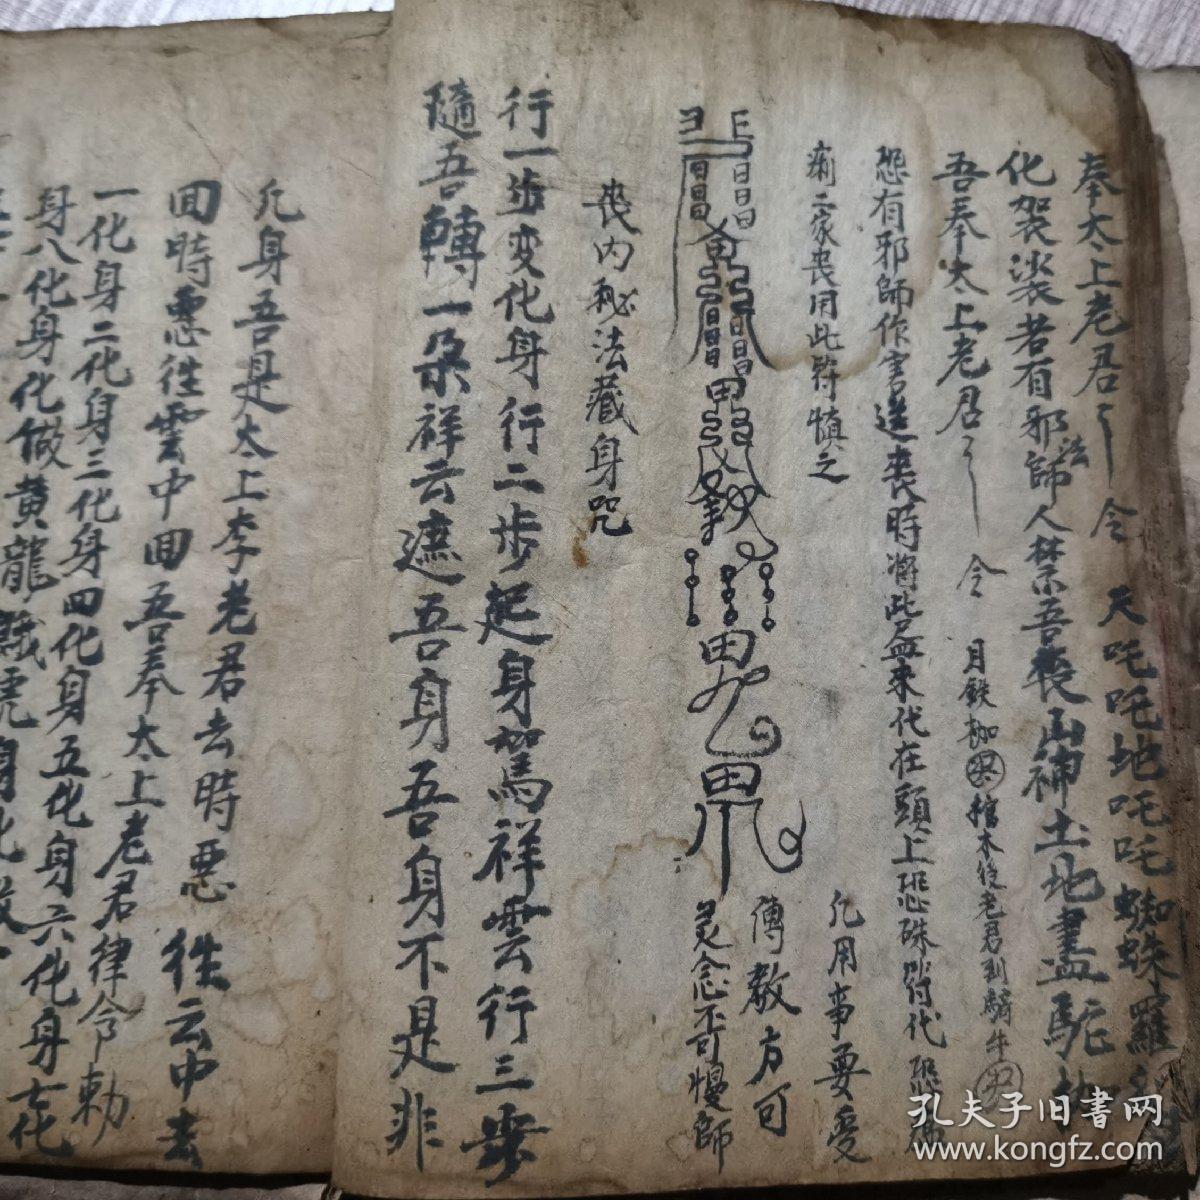 奉太上老君 令 天吒吒地吒吒蜘蛛羅
化袈裟若有邪師法人禁吾喪山神土地盡駝
吾奉太上老君 令 月鉄枷 棺木後老君到騎牛
恐有邪師作害送喪時將此
代在頭上恐硃符代
痢二家喪用此符慎之
凡用事要受
傳教方可
灵念不可慢師
喪内秘法藏身咒
行一步变化身行二步起身駕祥雲行三步
隨吾轉一朵祥云遮吾身吾身不是非
凢身吾是太上李老君去時恶徃云中去
回時恶徃雲中回吾奉太上老君律令勅
一化身二化身三化身四化身五化身六化身七化
身八化身化做黄龍
孔夫子旧书网
www.kongfz.com